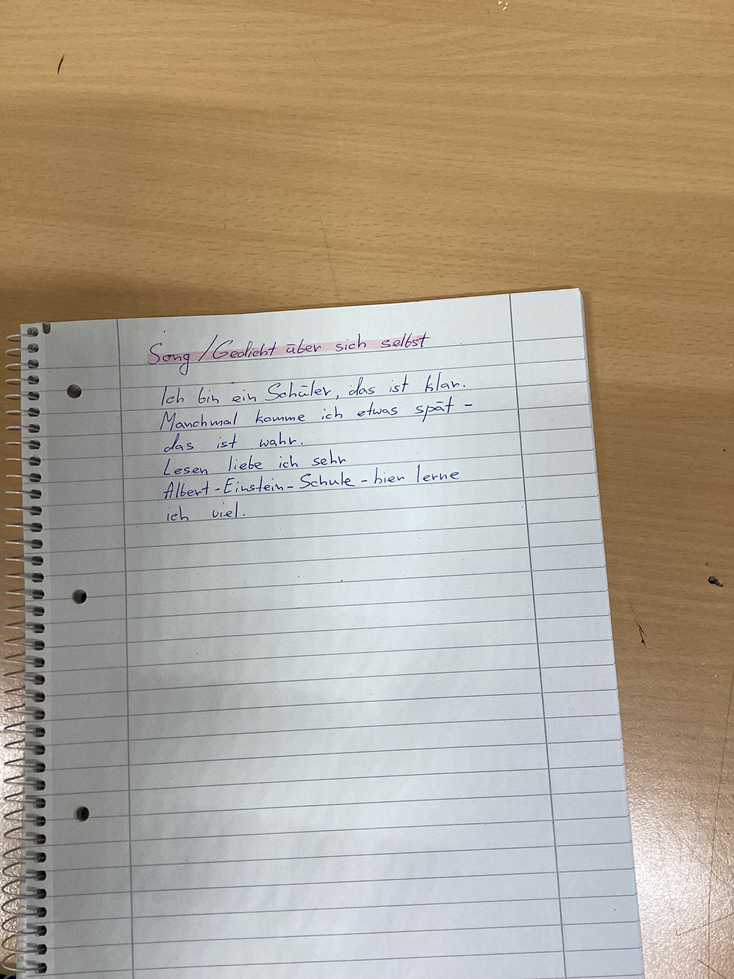 Song/Gedicht über sich selbst
Ich bin ein Schüler, das ist klar.
Manchmal komme ich etwas spät -
das ist wahr.
Lesen liebe ich sehr
Albert-Einstein-Schule - hier lerne
ich viel.